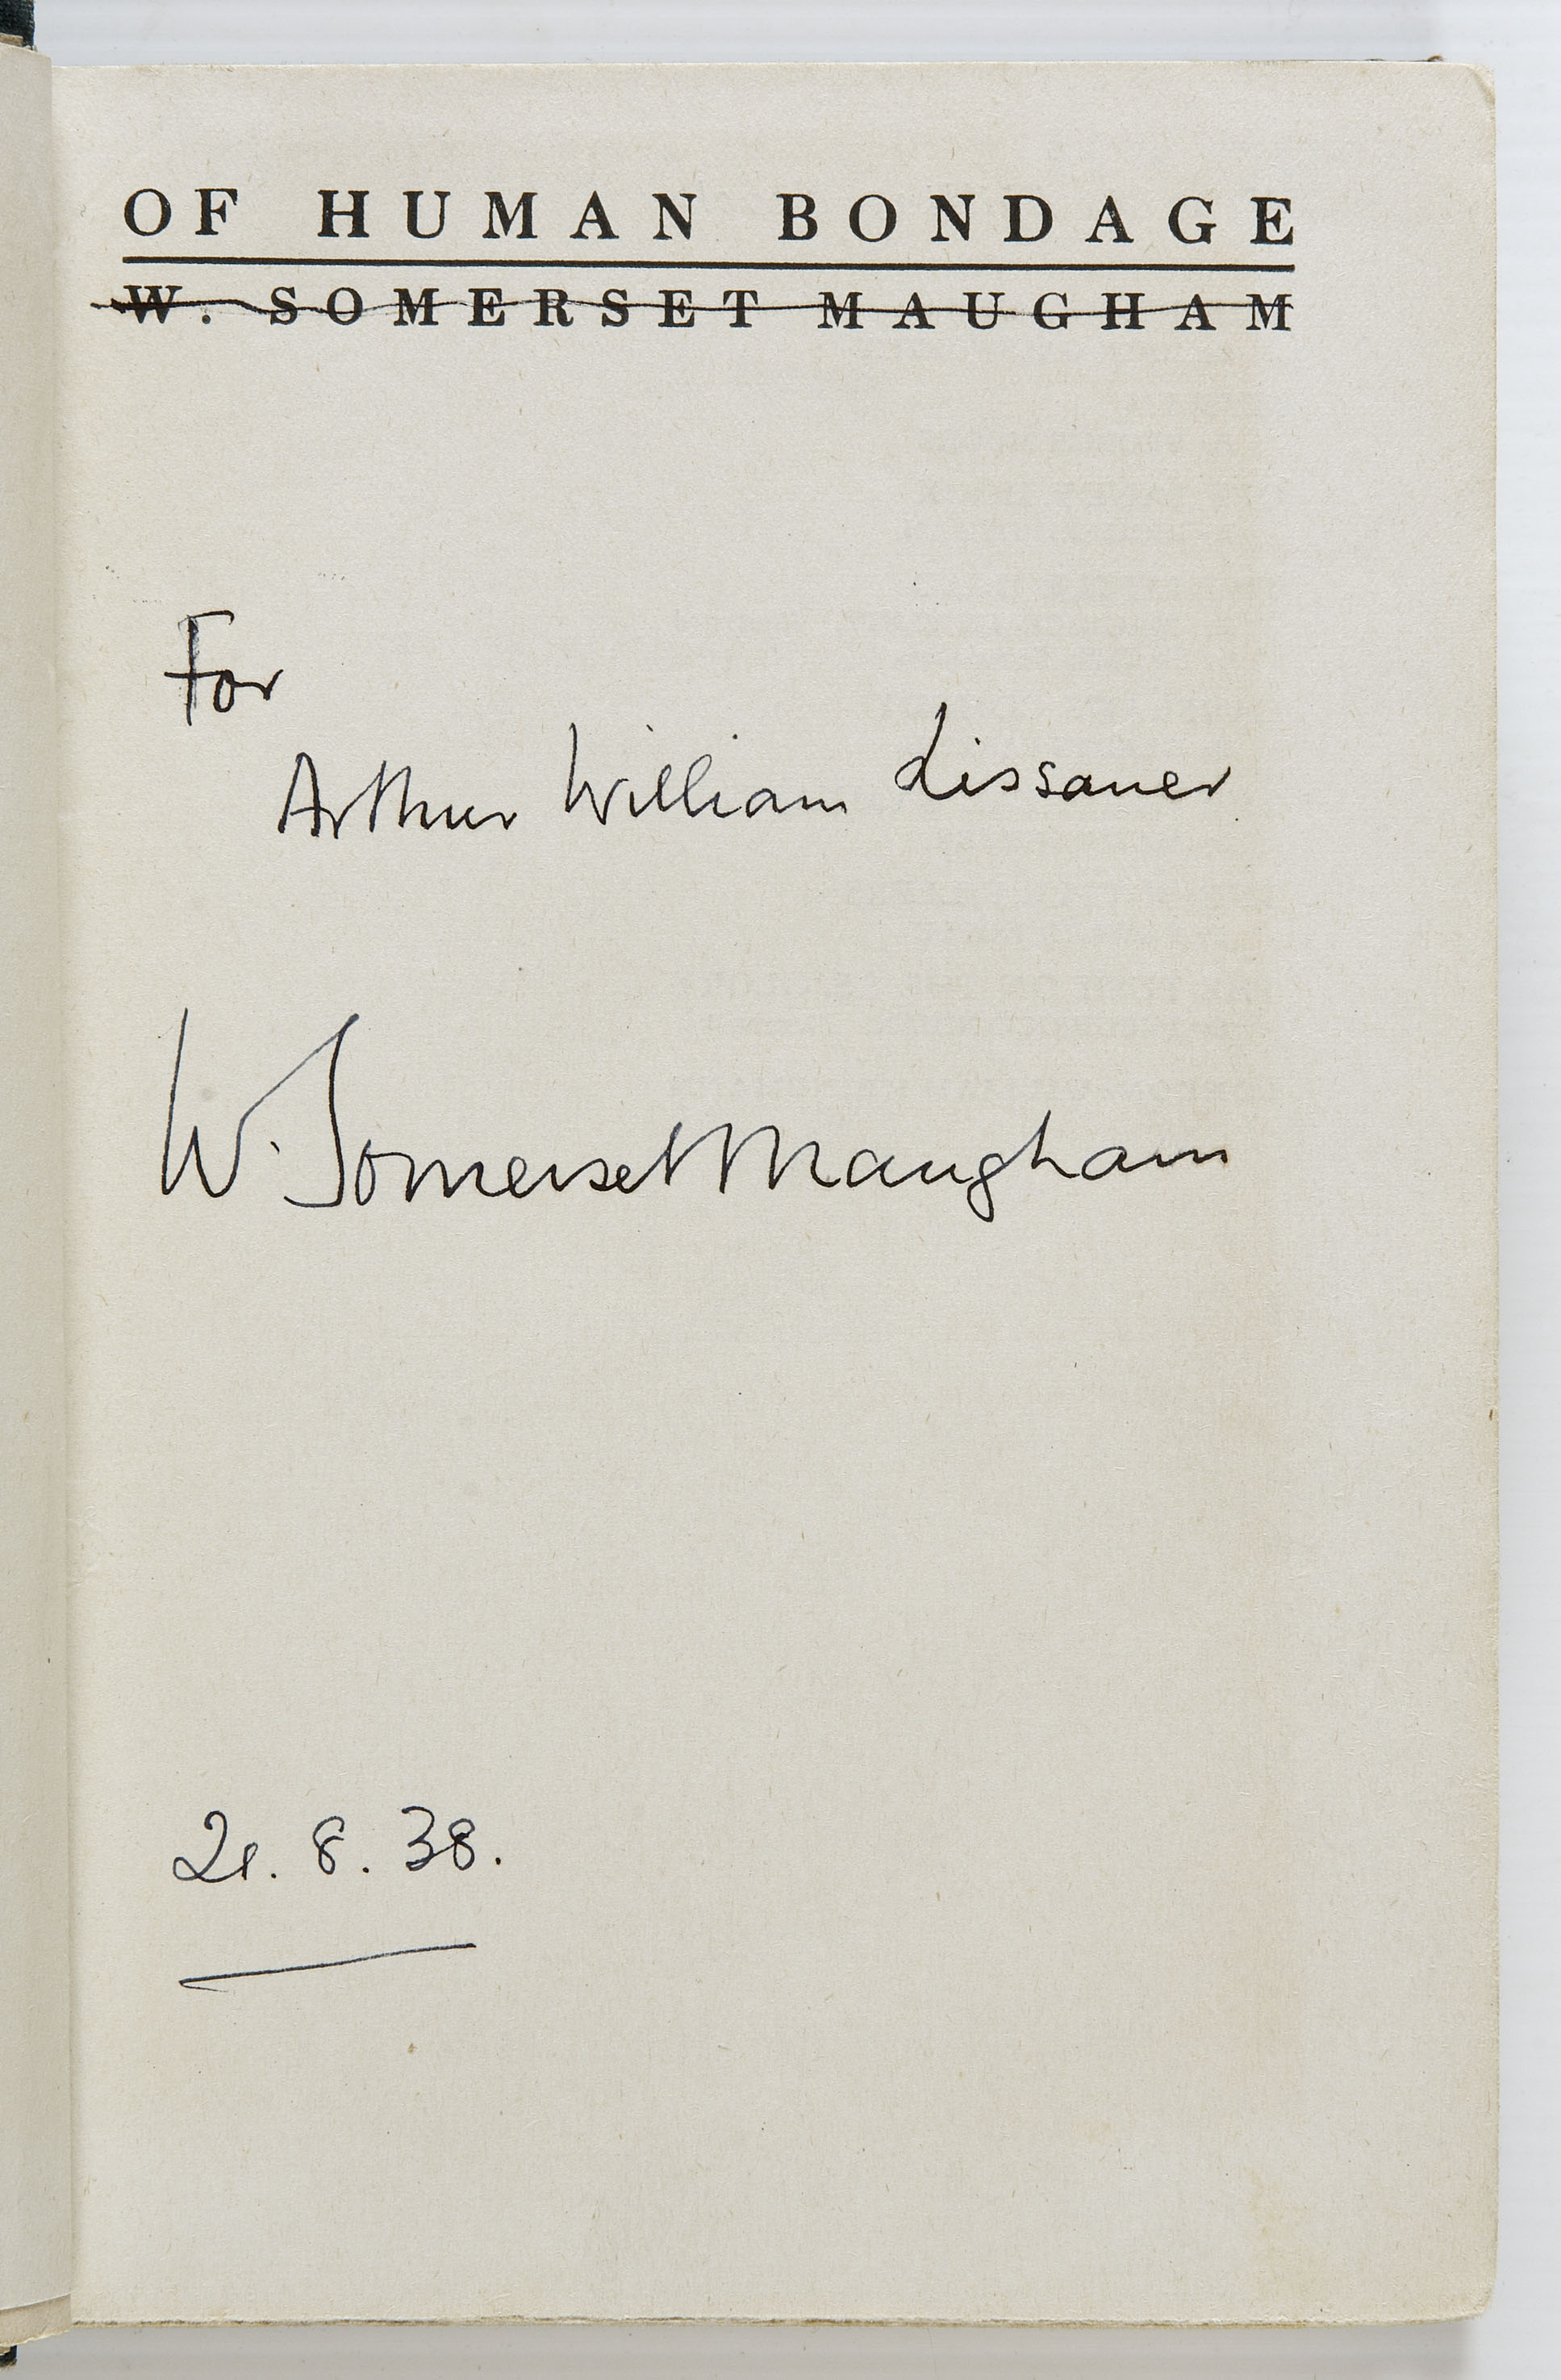 OF HUMAN BONDAGE
W. SOMERSET MAUGHAM
For
Arthur William Lissauer
W. Somerset Maugham
21. 8. 38.